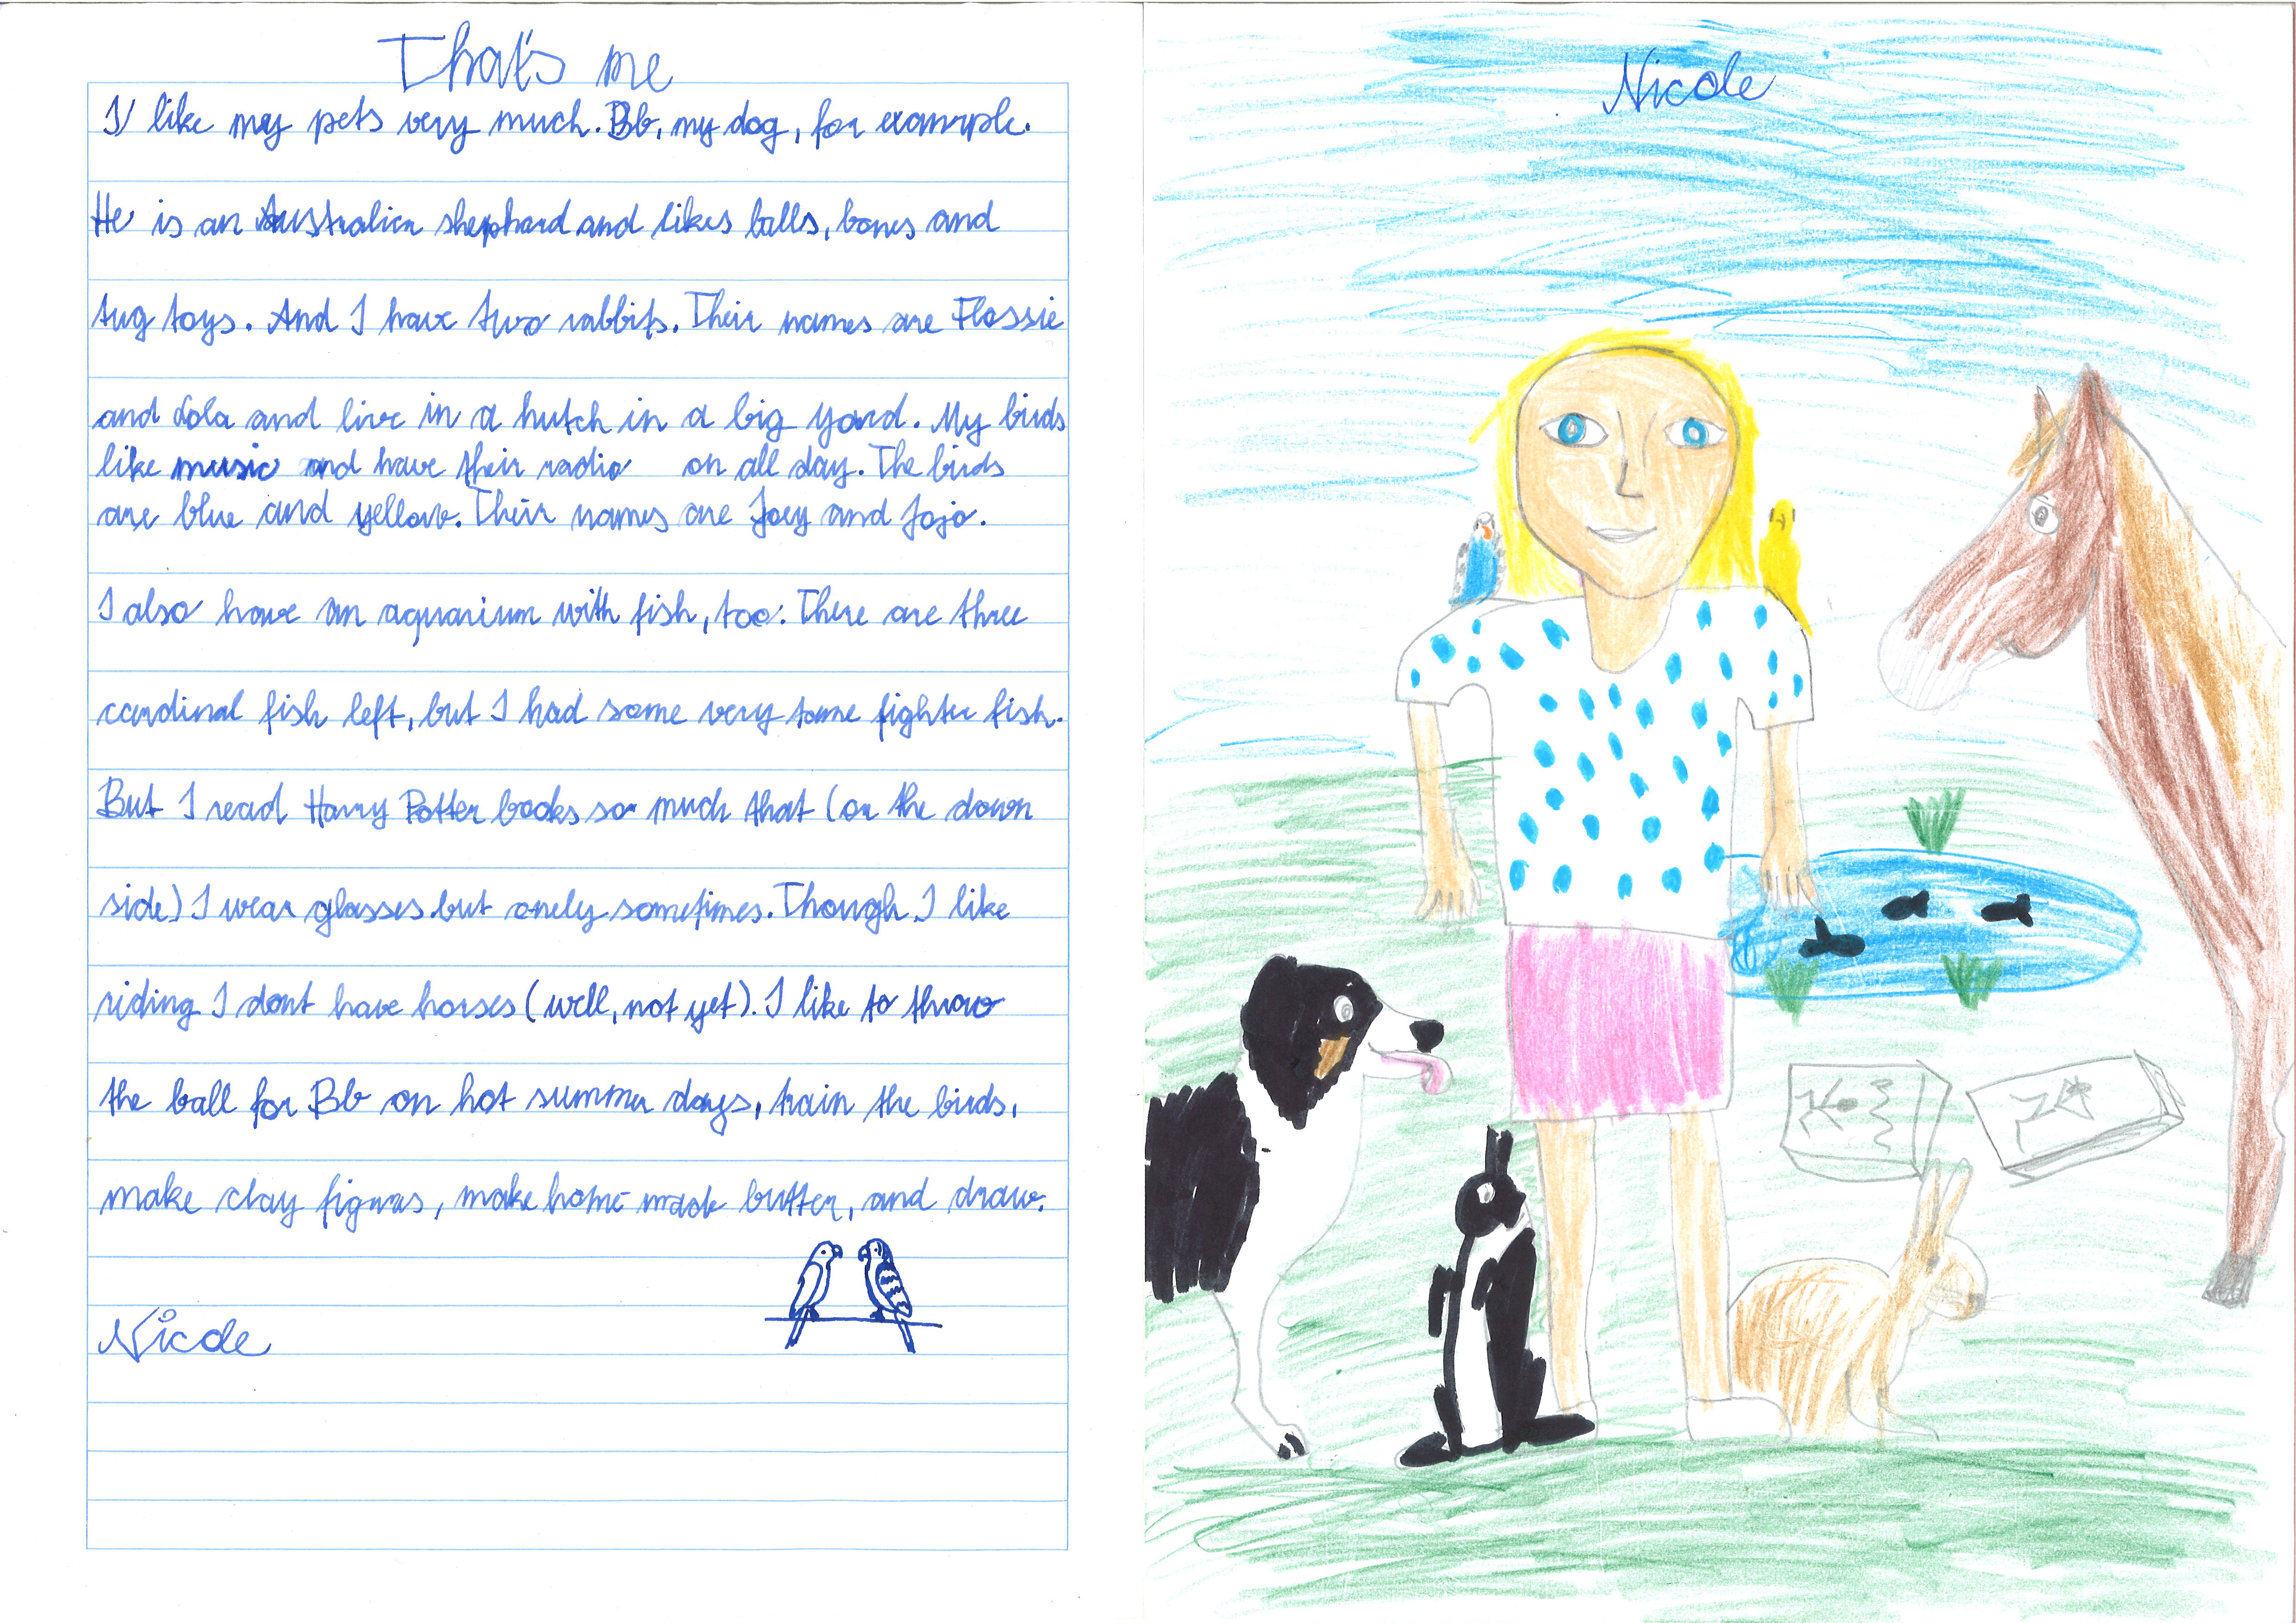 That's me
I like my pets very much. Bb, my dog, for example.
He is an Australian shephard and likes balls, bones and
tug toys. And I have two rabbits. Their names are Flossie
and Lola and live in a hutch in a big yard. My birds
like music and have their radio on all day. The birds
are blue and yellow. Their names are Joey and Jojo.
I also have an aquarium with fish, too. There are three
cardinal fish left, but I had some very tame fighter fish.
But I read Harry Potter books so much that (on the down
side) I wear glasses but onely sometimes. Though I like
riding I dont have horses (well, not yet). I like to throw
the ball for Bb on hot summer days, train the birds,
make clay figures, make home-made butter, and draw.
Nicole
Nicole